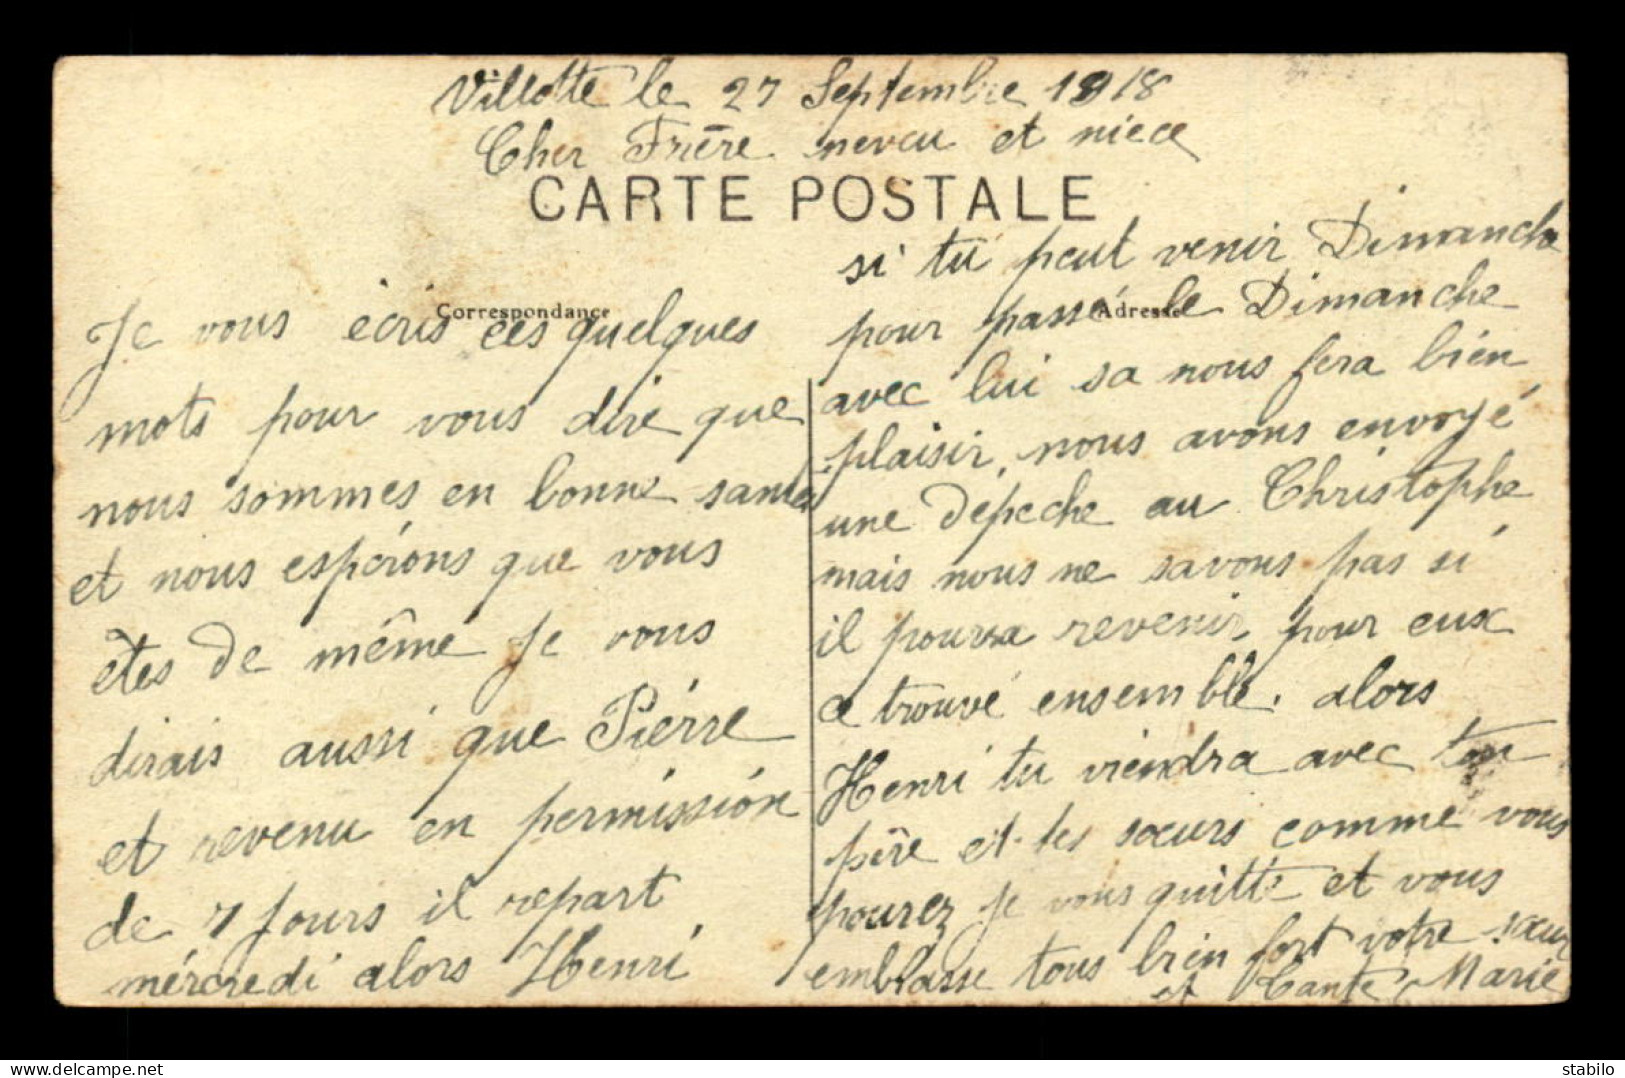 Villotte le 27 Septembre 1918
Cher Frère neveu et niece
CARTE POSTALE
Correspondance
Je vous écris ces quelques
mots pour vous dire que
nous sommes en bonne santé
et nous espérons que vous
êtes de même je vous
dirais aussi que Piérre
et revenu en permission
de 7 jours il repart
mércredi alors Henri
Adresse
si tu peut venir Dimanche
pour passé le Dimanche
avec lui sa nous fera bien
plaisir, nous avons envoyé
une dépeche au Christophe
mais nous ne savons pas si
il pourra revenir, pour eux
ce trouvé ensemble. alors
Henri tu viendra avec ton
père et tes sœurs comme vous
pourez je vous quitte et vous
emblasse tous bien fort votre sœur
et tante Marie
delcampe.net
stabilo